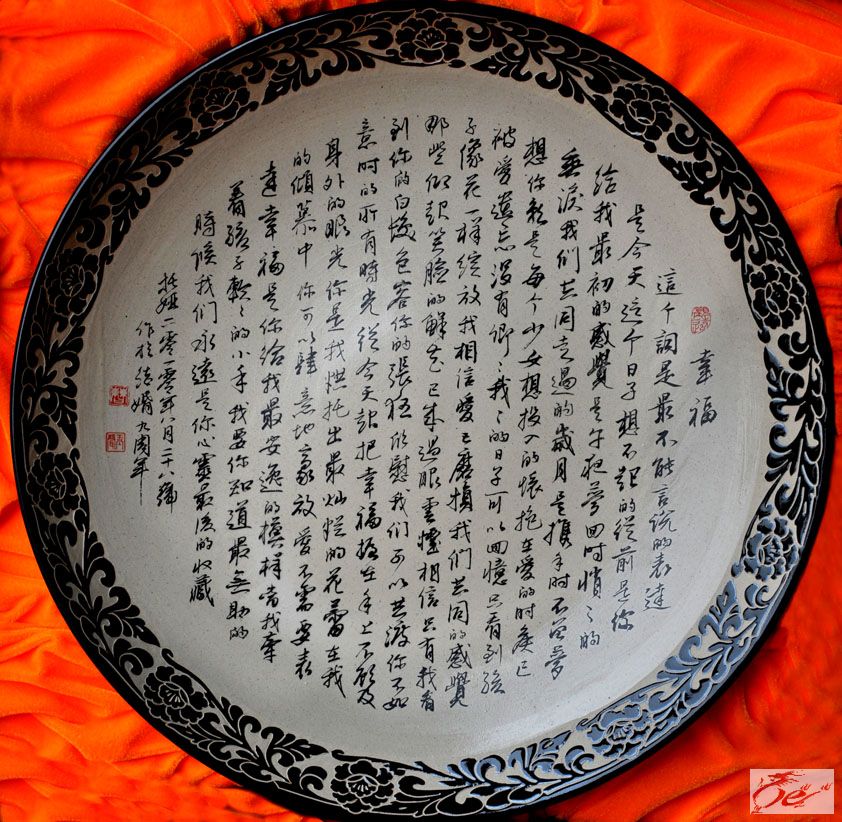 幸福
這个詞是最不能言說的表達
是今天這个日子想不起的從前是你
給我最初的感覺是午夜夢回时悄〻的
垂淚我们共同走過的歲月是携手时不
想你就是每个少女想投入的懷抱在愛的时候已
被愛遺忘沒有卿〻我〻的日子可以回憶只看到孩
子像花一样綻放我相信愛已磨損我們共同的感覺
那些仰起笑臉的鮮花已成過眼雲煙相信只有我看
到你的白髮包容你的張狂欣慰我们可以共渡你不如
意时的所有時光從今天起把幸福握在手上不顧及
身外的眼光你是我烘托出最灿烂的花蕾在我
的傾慕中你可以肆意地豪放愛不需要表
達幸福是你給我最安逸的模样當我牽
着孩子軟〻的小手我要你知道最無助的
時候我们永遠是你心靈最後的收藏
二零一零年八月二十八號
作於结婚九周年